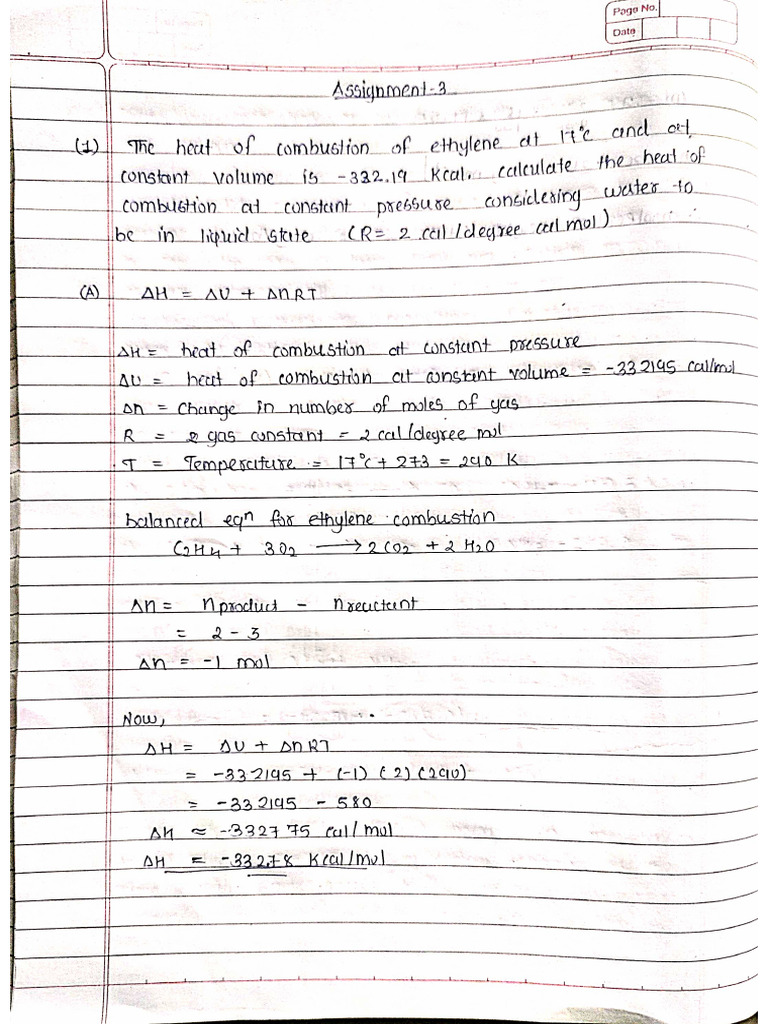 Page No.
Date
Assignment-3
(1) The heat of combustion of ethylene at 17°c and at
constant volume is -332.19 Kcal. calculate the heat of
combustion at constant pressure considering water to
be in liquid state (R= 2 cal/degree cal mol)
(A) ΔH = ΔU + ΔnRT
ΔH = heat of combustion at constant pressure
ΔU = heat of combustion at constant volume = -332195 cal/mol
Δn = Change in number of moles of gas
R = gas constant = 2 cal/degree mol
T = Temperature = 17°c + 273 = 290 K
balanced eqn for ethylene combustion
C2H4 + 3O2 ⟶ 2CO2 + 2H2O
Δn = nproduct - nreactant
= 2 - 3
Δn = -1 mol
Now,
ΔH = ΔU + ΔnRT
= -332195 + (-1) (2) (290)
= -332195 - 580
ΔH ≈ -332775 cal/mol
ΔH = -332.78 Kcal/mol